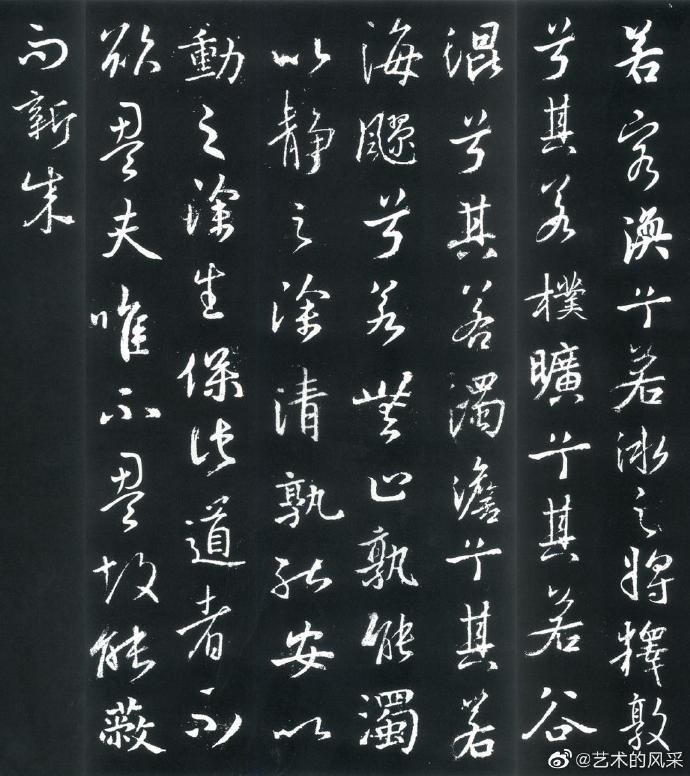 若客渙兮若冰之將釋敦
兮其若樸曠兮其若谷
混兮其若濁澹兮其若
海飂兮若無止孰能濁
以靜之徐清孰能安以
動之徐生保此道者不
欲盈夫唯不盈故能蔽
而新成
@艺术的风采